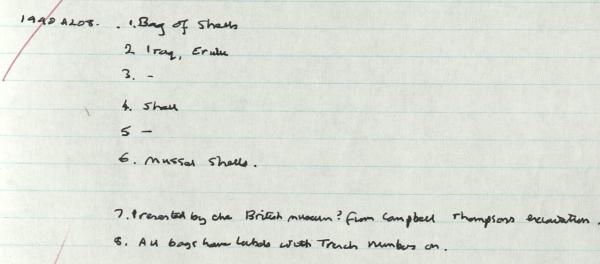 1948 A208. . 1. Bag of Shells
2 Iraq, Eridu
3. -
4. Shell
5 -
6. Mussel Shells.
7. Presented by the British museum? from Campbell Thompsons excavation.
8. All bags have labels with Trench numbers on.